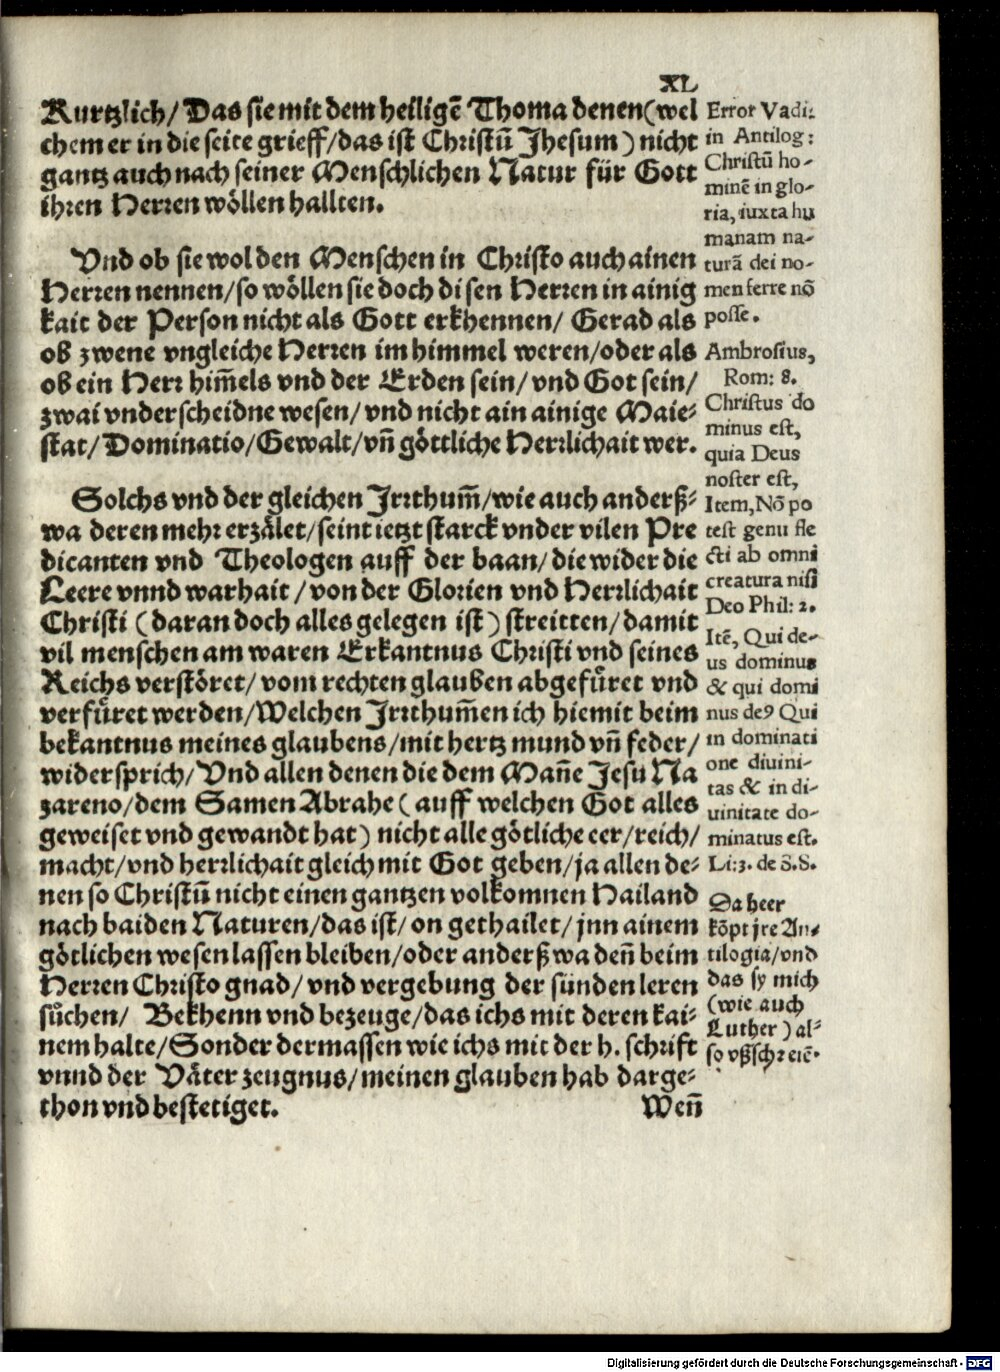 XL
Kurtzlich/ Das sie mit dem heiligē Thoma denen (wel
chem er in die seite grieff/das ist Christū Jhesum) nicht
gantz auch nach seiner Menschlichen Natur für Gott
ihren Herren wöllen hallten.
Vnd ob sie wol den Menschen in Christo auch ainen
Herren nennen/so wöllen sie doch disen Herren in ainig
kait der Person nicht als Gott erkhennen/ Gerad als
ob zwene vngleiche Herren im himmel weren/oder als
ob ein Herr him̄els vnd der Erden sein/ vnd Got sein/
zwai vnderscheidne wesen/ vnd nicht ain ainige Maie⸗
stat/ Dominatio/Gewalt/vn̄ göttliche Herrlichait wer.
Solchs vnd der gleichen Jrrthum̄/wie auch anderß⸗
wa deren mehr erzälet/seint ietzt starck vnder vilen Pre
dicanten vnd Theologen auff der baan/die wider die
Leere vnnd warhait /von der Glorien vnd Herrlichait
Christi (daran doch alles gelegen ist) streitten/damit
vil menschen am waren Erkantnus Christi vnd seines
Reichs verstöret/ vom rechten glauben abgefüret vnd
verfüret werden/Welchen Jrrthum̄en ich hiemit beim
bekantnus meines glaubens/mit hertz mund vn̄ feder/
widersprich/ Vnd allen denen die dem Man̄e Jesu Na
zareno/dem Samen Abrahe (auff welchen Got alles
geweiset vnd gewandt hat) nicht alle götliche eer/reich/
macht/vnd herrlichait gleich mit Got geben/ja allen de⸗
nen so Christū nicht einen gantzen volkomnen Hailand
nach baiden Naturen/das ist/ on gethailet/ jnn ainem
götlichen wesen lassen bleiben/oder anderßwa den̄ beim
Herren Christo gnad/ vnd vergebung der sünden leren
sůchen/ Bekhenn vnd bezeuge/das ichs mit deren kai⸗
nem halte/Sonder dermassen wie ichs mit der h. schrift
vnnd der Väter zeugnus/meinen glauben hab darge⸗
thon vnd bestetiget.
Wen̄
Error Vadi:
in Antilog:
Christū ho-
minē in glo-
ria, iuxta hu
manam na-
turā dei no-
men ferre nō
posse.
Ambrosius,
Rom: 8.
Christus do
minus est,
quia Deus
noster est,
Item, Nō po
test genu fle
cti ab omni
creatura nisi
Deo Phil: 2.
Itē, Qui de-
us dominus
& qui domi
nus deꝰ Qui
in dominati
one diuini-
tas & in di-
uinitate do-
minatus est.
Li:3. de S.S.
Da heer
kōpt jre An⸗
tilogia/vnd
das sy mich
(wie auch
Luther) al⸗
so vßschreiē.
Digitalisierung gefördert durch die Deutsche Forschungsgemeinschaft - DFG